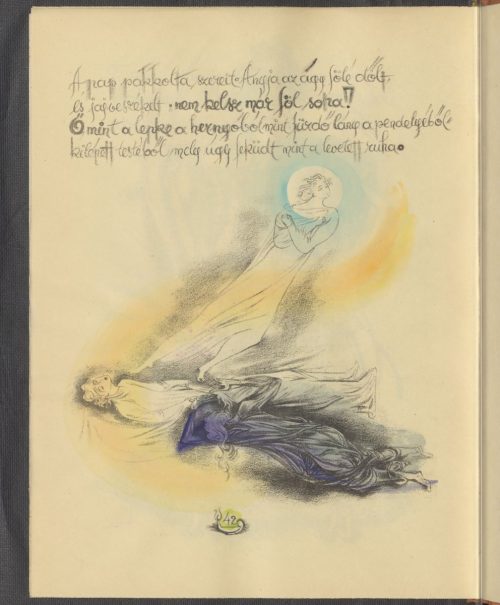 A nap pakkolta, szerette Anyja az ágy fölé dőlt
és jajveszékelt • nem kelsz már föl soha!
Ő mint a lepke a hernyóból mint fürdő lány a pendelyéből
kilépett testéből mely úgy feküdt mint a levetett ruha.
42